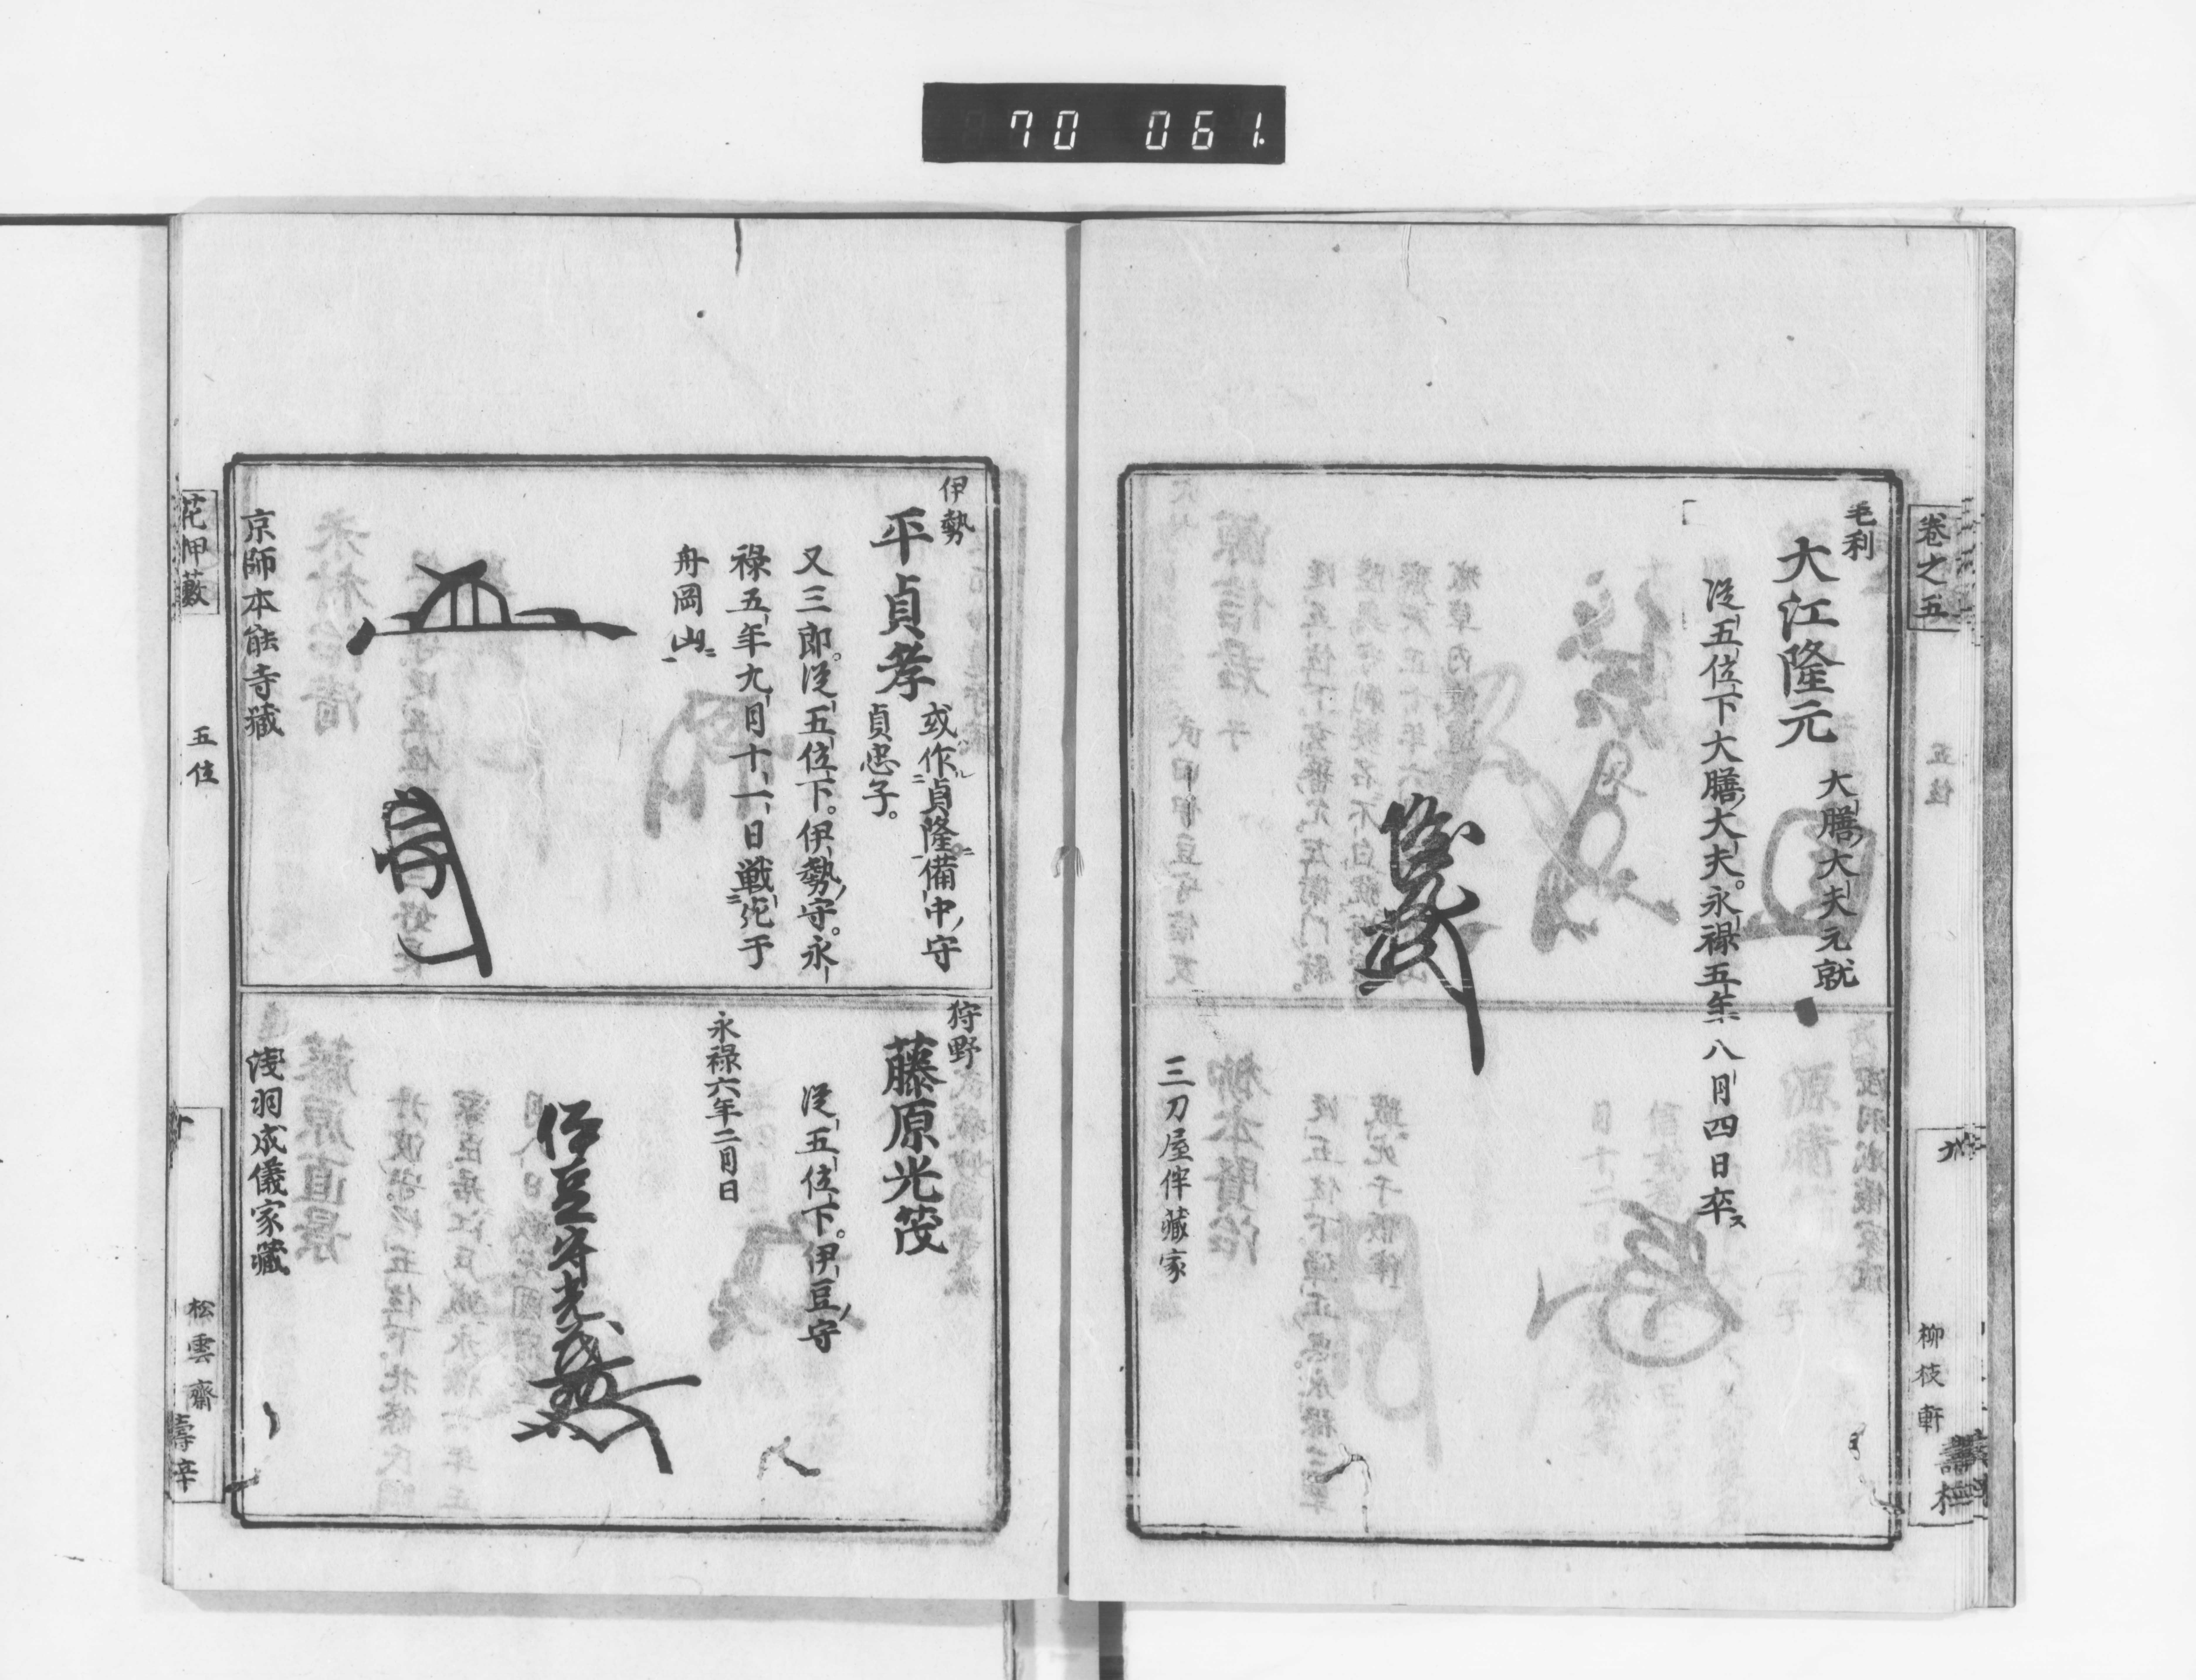 70 061.
卷之五
五位
柳枝軒
毛利
大江隆元
大膳大夫元就
従五位下大膳大夫。永禄五年八月四日卒ス
三刀屋伴藏家
伊勢
平貞孝
或作貞隆備中守
貞忠子。
又三郎。従五位下。伊勢守。永
禄五年九月十一日戦死于
舟岡山
京師本能寺藏
狩野
藤原光茂
従五位下。伊豆守
永禄六年二月日
伊豆守光茂
浅羽成儀家藏
花押藪
五位
松雲齋